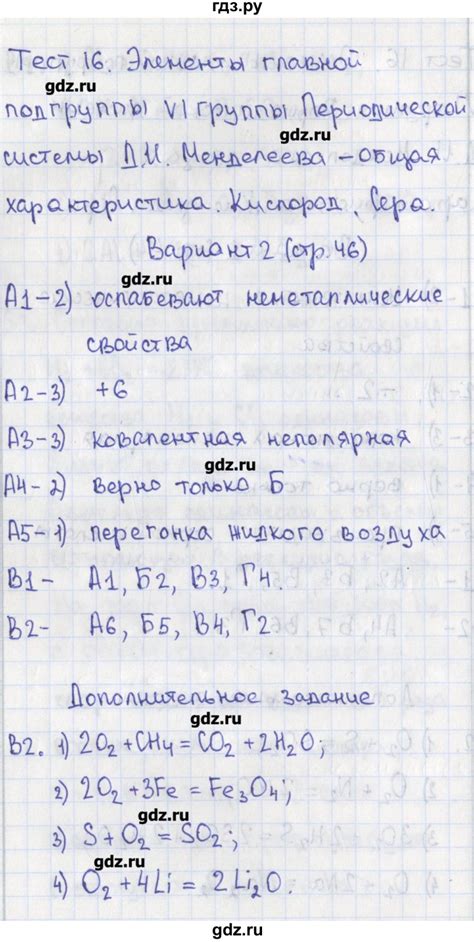 гдз.ру
Тест 16. Элементы главной
gdz.ru
gdz.ru
подгруппы VI группы Периодической
системы Д.И. Менделеева – общая
характеристика. Кислород. Сера.
Вариант 2 (стр. 46)
gdz.ru
А1-2) ослабевают неметаллические
свойства
gdz.ru
А2-3) +6
А3-3) ковалентная неполярная
gdz.ru
А4-2) верно только Б
А5-1) перегонка жидкого воздуха
gdz.ru
В1- А1, Б2, В3, Г4.
В2- А6, Б5, В4, Г2
gdz.ru
Дополнительное задание
gdz.ru
В2. 1) 2O₂+CH₄=CO₂+2H₂O;
gdz.ru
2) 2O₂+3Fe=Fe₃O₄;
3) S+O₂=SO₂;
gdz.ru
4) O₂+4Li=2Li₂O.
gdz.ru